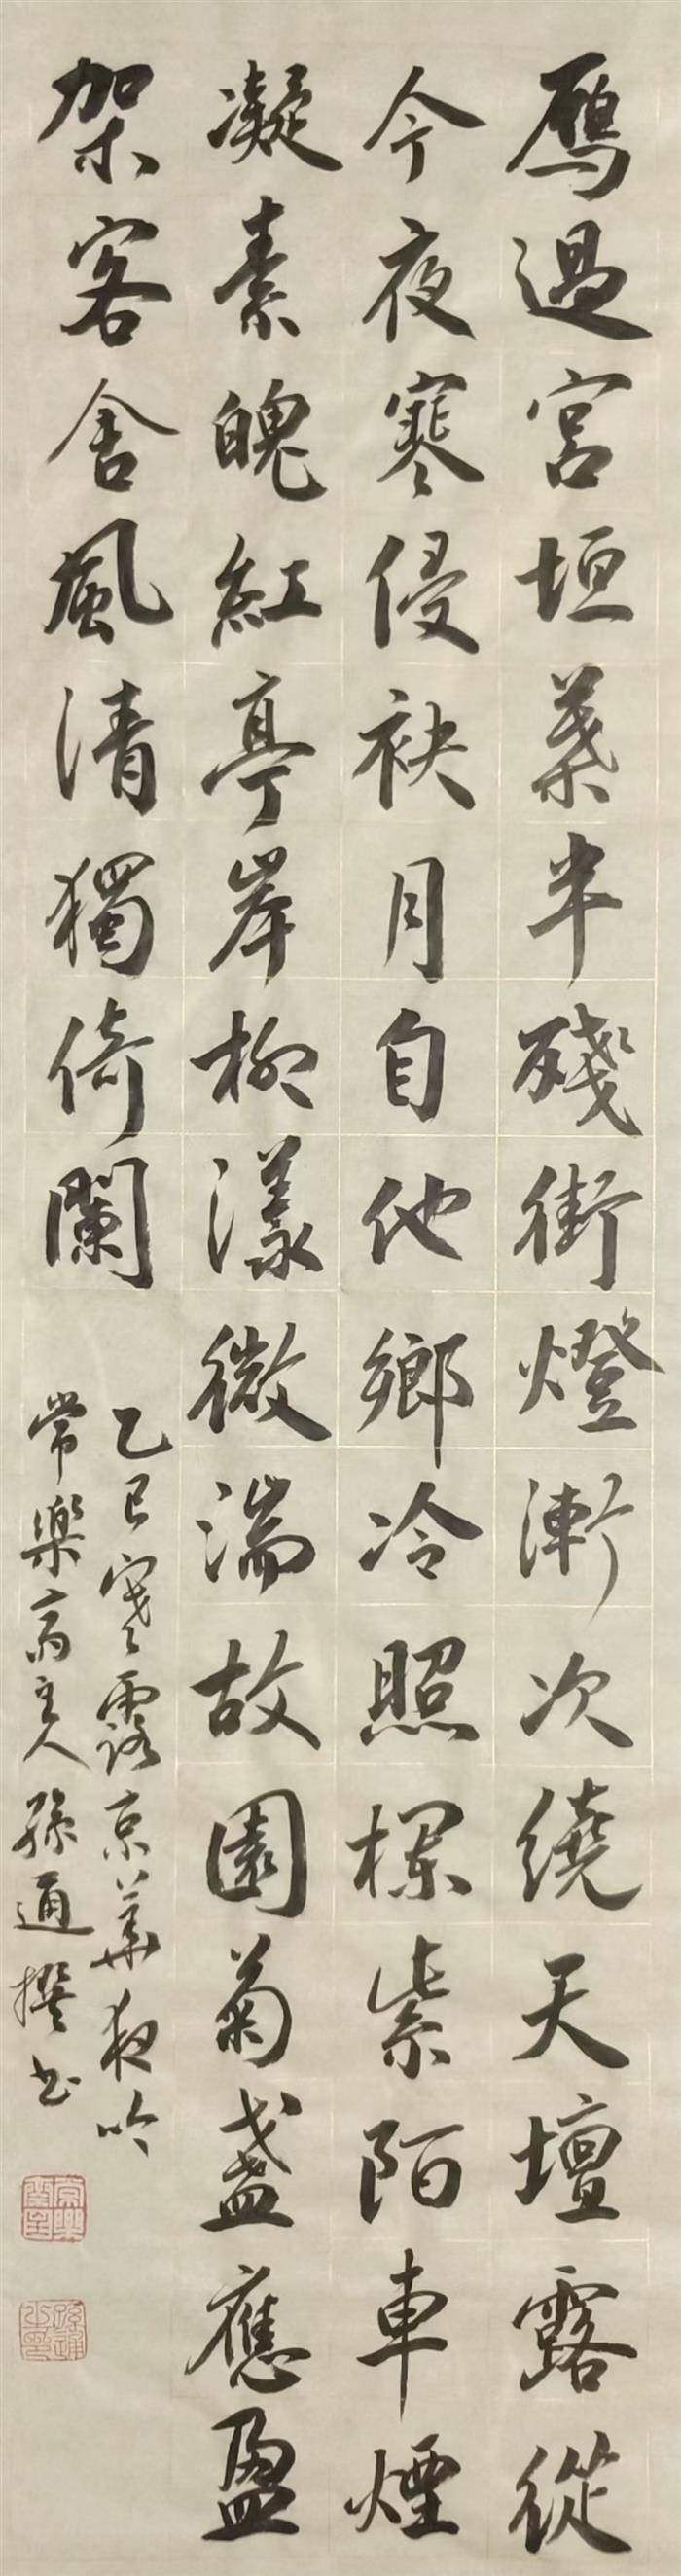 鴈過宮垣葉半殘街燈漸次繞天壇露從
今夜寒侵袂月自他鄉冷照欄紫陌車煙
凝素魄紅亭岸柳漾微湍故園菊盞應盈
架客舍風清獨倚闌
乙巳寒露京華夜吟
常樂齋主人孫通撰书